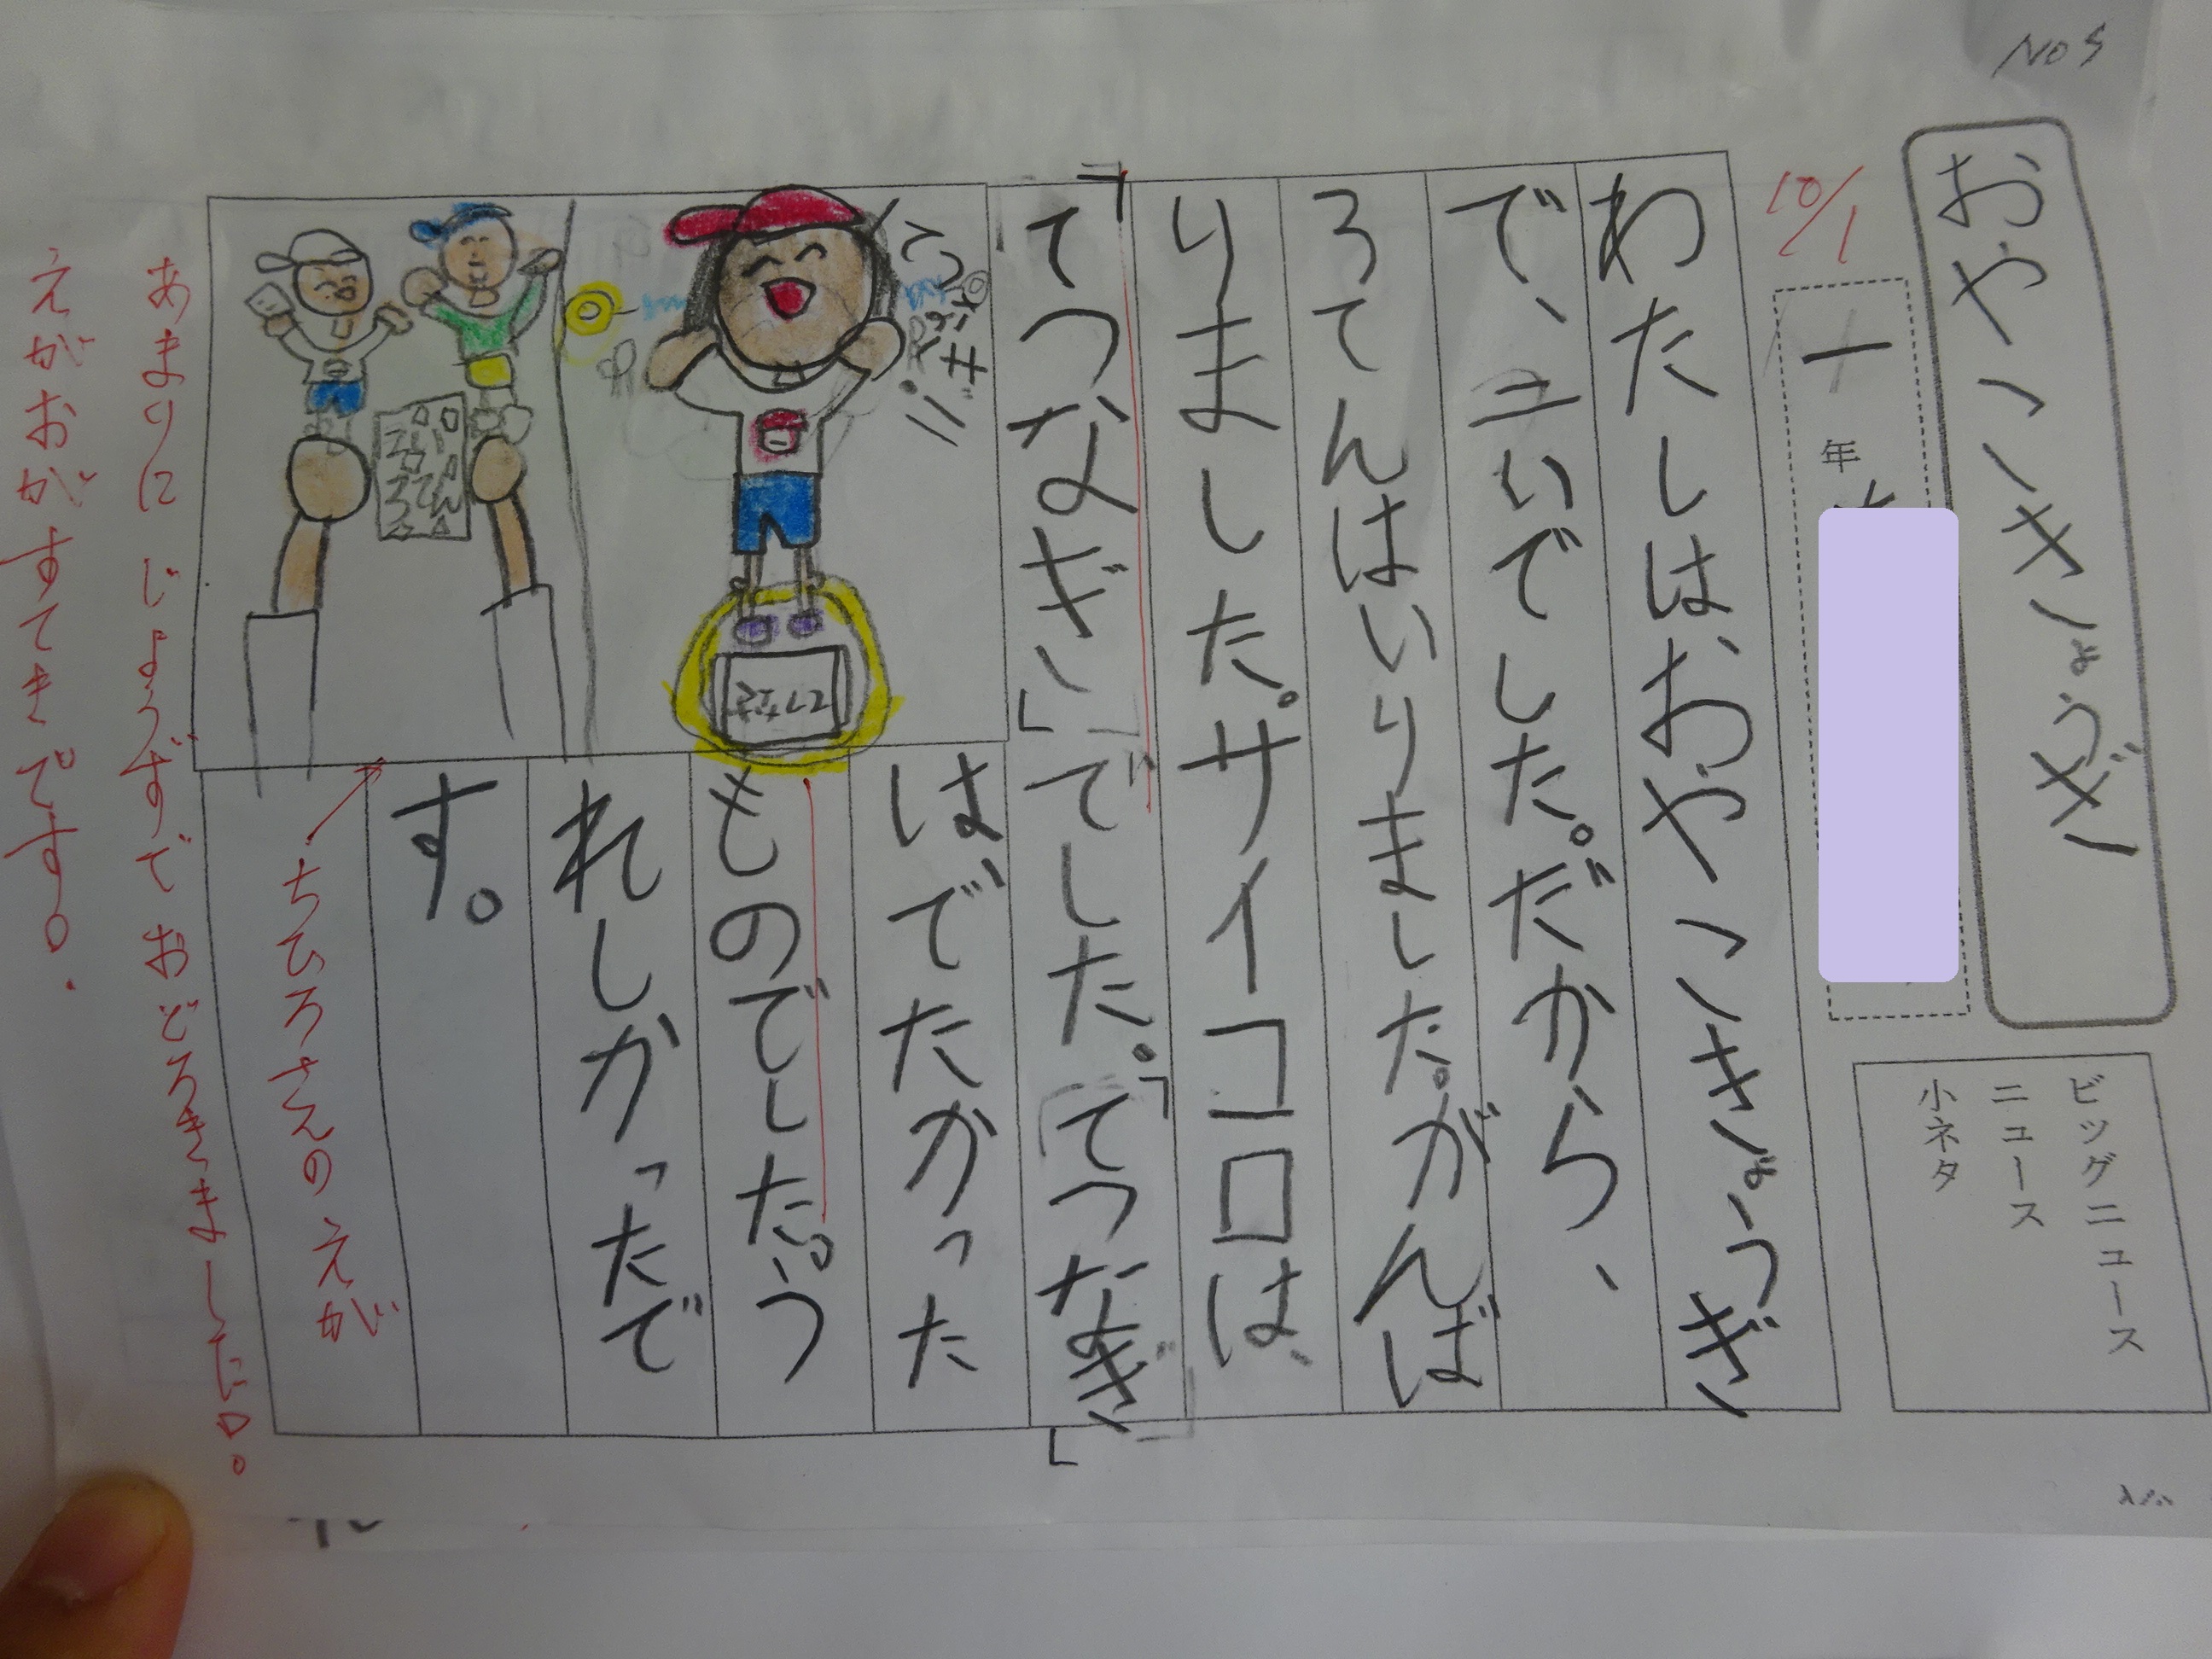 NO5
おやこきょうぎ
10/1
一年
ビッグニュース
ニュース
小ネタ
わたしは、おやこきょうぎ
で、二いでした。だから、
ろてんはいりました。がんば
りました。サイコロは、
「てつなぎ」でした。「てつなぎ」
はでたかった
ものでした。う
れしかったで
す。
ちひろさんの えが
あまりに じょうずで おどろきました。
えがおがすてきです。